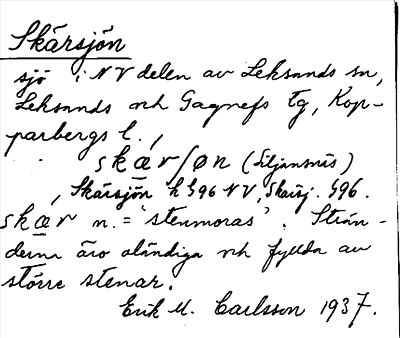 Skärsjön
sjö i NV delen av Leksands sn,
Leksands och Gagnefs tg, Kop-
parbergs l.
skæ̱r/øn (Siljansnäs)
Skärsjön h 596 NV, Skärsj. 596.
skæ̱r n. = 'stenmoras'. Strän-
derna äro oländiga och fyllda av
större stenar.
Erik M. Carlsson 1937.